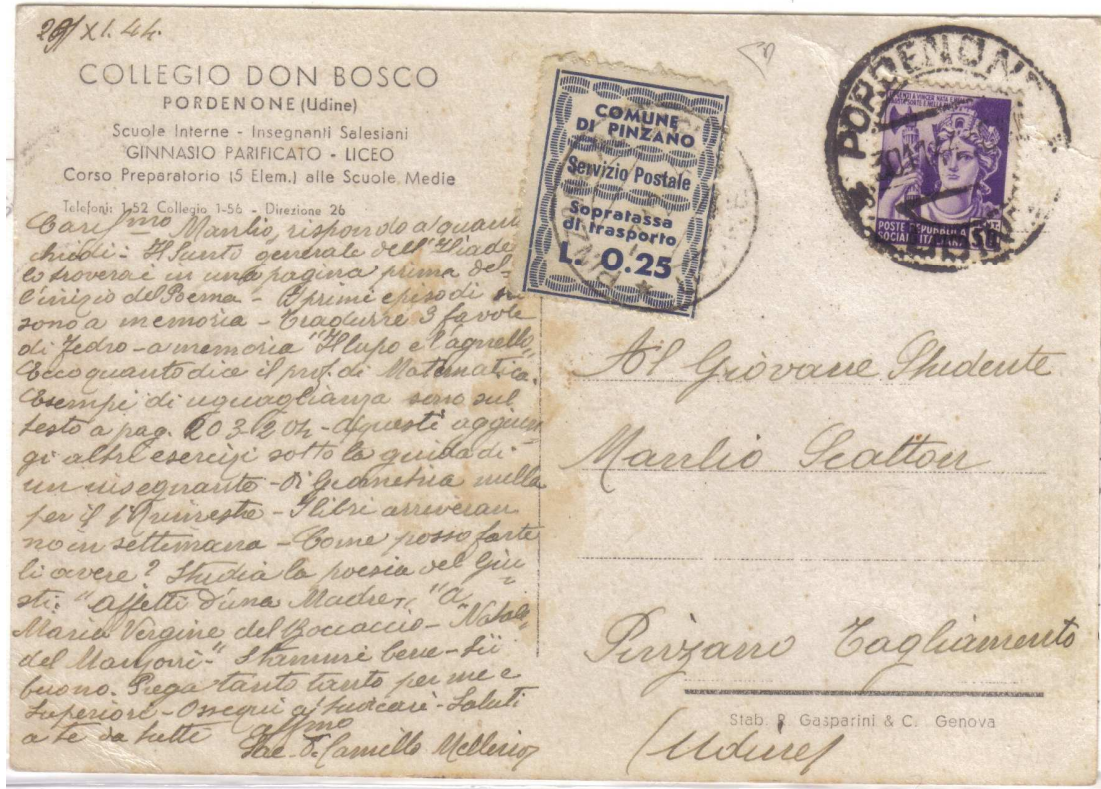 29/XI.44.
COLLEGIO DON BOSCO
PORDENONE (Udine)
Scuole Interne - Insegnanti Salesiani
GINNASIO PARIFICATO - LICEO
Corso Preparatorio (5 Elem.) alle Scuole Medie
Telefoni: 1-52 Collegio 1-56 - Direzione 26
Carissmo Manlio, rispondo a quanto
chiedi - Il Sunto generale dell'Iliade
lo troverai in una pagina prima del-
l'inizio del Poema - I primi episodi
sono a memoria - Tradurre 3 favole
di Fedro - a memoria "Il lupo e l'agnello"
Ecco quanto dice il prof. di Matematica.
Esempi di uguaglianza sono sul
testo a pag. 203-204 - a questi aggiun
gi altri esercizi sotto la guida di
un insegnante - Di Geometria nulla
per il 1° trimestre - I libri arriveran
no in settimana - Come posso farte
li avere? Studia la poesia del Giu
sti: "Affetti d'una Madre" "A
Maria Vergine del Boccaccio - "Natale
del Manzoni" - Stammi bene - Sii
buono. Prega tanto tanto per me e
Superiori - Ossequi ai tuoi cari - Saluti
a te da tutti
aff.mo
Sac. D. Camillo Mellerio
COMUNE
DI PINZANO
Servizio Postale
Sopratassa
di trasporto
L. 0.25
PORDENONE
30.11
POSTE REPUBBLICA
SOCIALE ITALIANA
Al Giovane Studente
Manlio Scatton
Pinzano Tagliamento
(Udine)
Stab. P. Gasparini & C. Genova